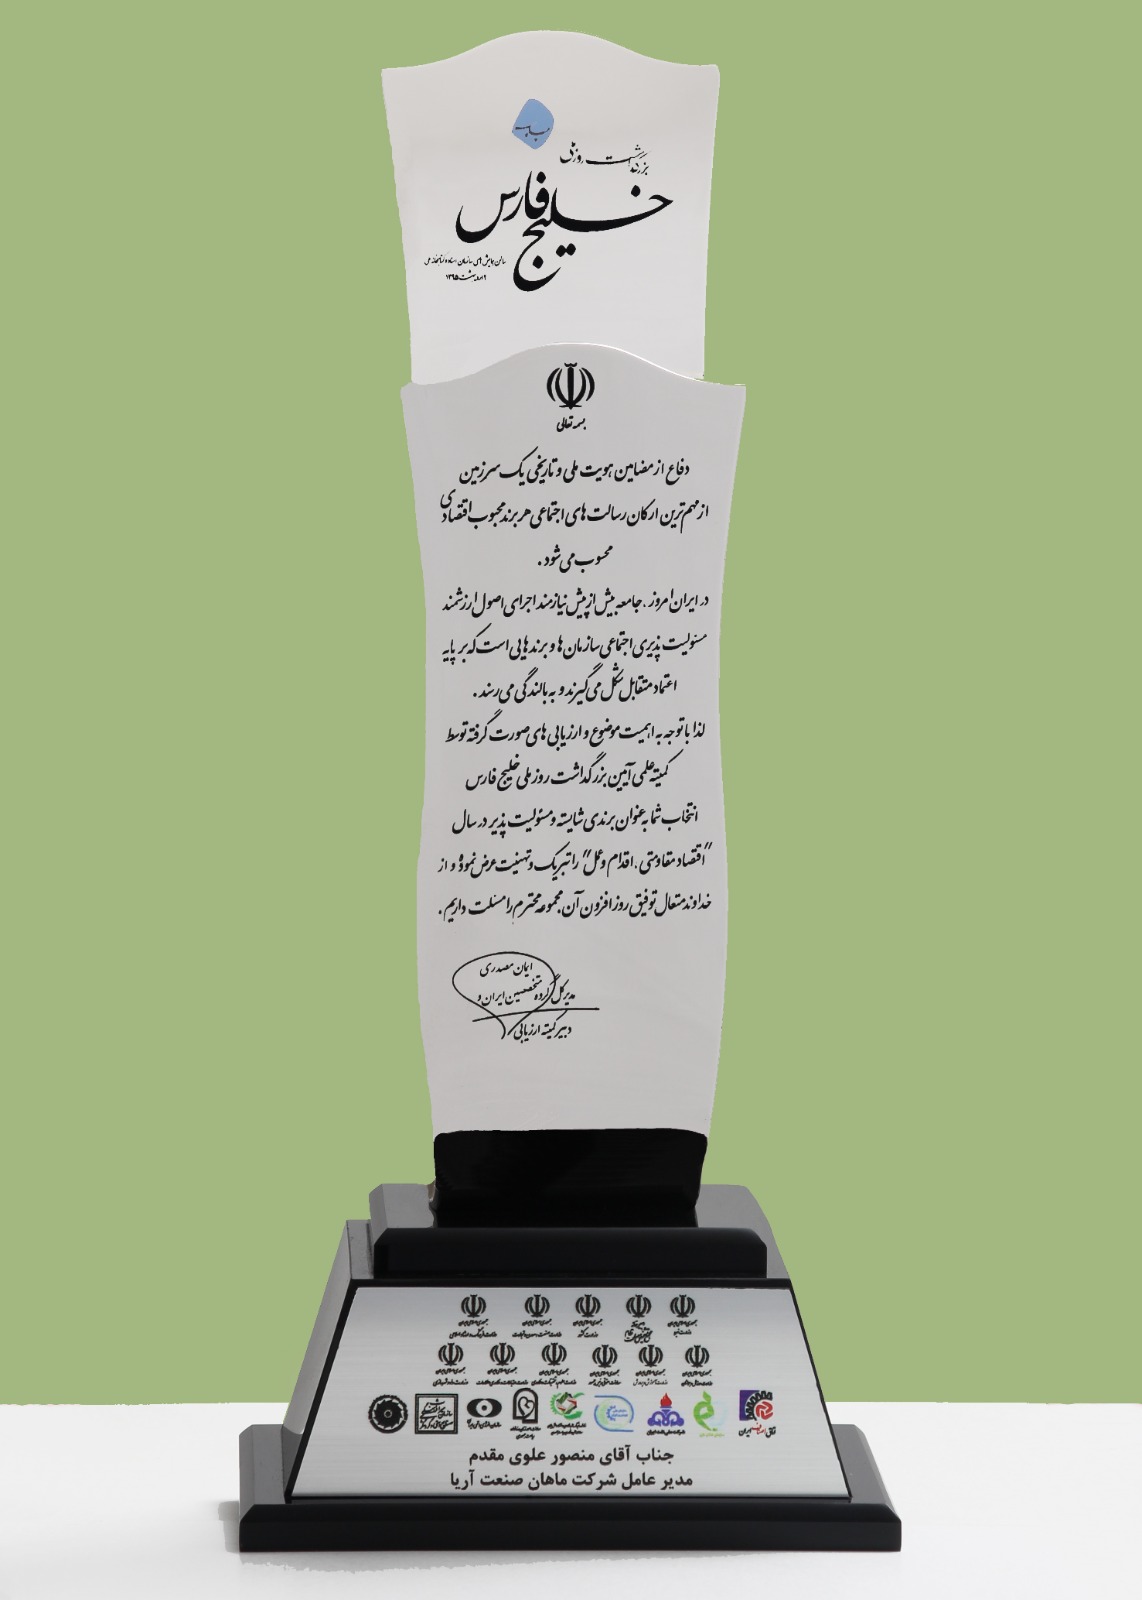 بزرگداشت روز ملی
خلیج فارس
سالن همایش های سازمان اسناد و کتابخانه ملی
۱۳۹۵
بسمه تعالی
دفاع از مضامین هویت ملی و تاریخی یک سرزمین
از مهم ترین ارکان رسالت های اجتماعی هر برند محبوب اقتصادی
محسوب می شود .
در ایران امروز ، جامعه بیش از پیش نیازمند اجرای اصول ارزشمند
مسئولیت پذیری اجتماعی سازمان ها و برند هایی است که بر پایه
اعتماد متقابل شکل می گیرند و به بالندگی می رسند .
لذا با توجه به اهمیت موضوع و ارزیابی های صورت گرفته توسط
کمیته علمی آیین بزرگداشت روز ملی خلیج فارس
انتخاب شما به عنوان برندی شایسته و مسئولیت پذیر در سال
"اقتصاد مقاومتی ، اقدام و عمل" را تبریک و تهنیت عرض نموده و از
خداوند متعال توفیق روز افزون آن مجموعه محترم را مسئلت داریم .
ایمان مصدری
مدیر کل گروه متخصصین ایران و
دبیر کمیته ارزیابی
اتاق اصناف ایران
جناب آقای منصور علوی مقدم
مدیر عامل شرکت ماهان صنعت آریا